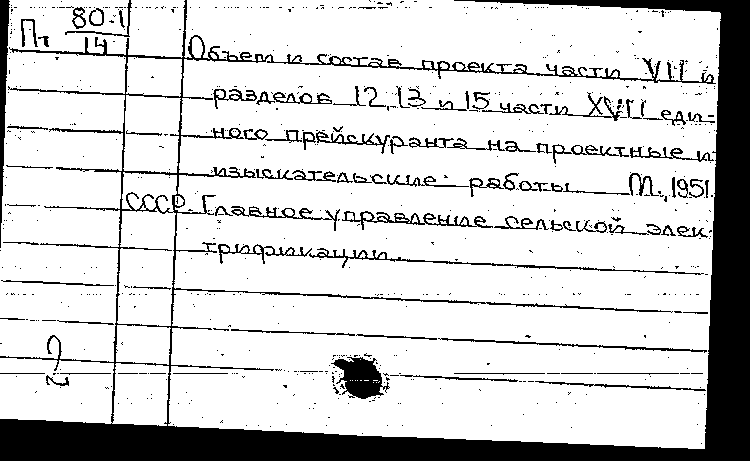 Пт 80-1
14
Объем и состав проекта части VII и
разделов 12, 13 и 15 части XVII еди-
ного прейскуранта на проектные и
изыскательские работы М., 1951.
СССР. Главное управление сельской элек-
трификации.
2